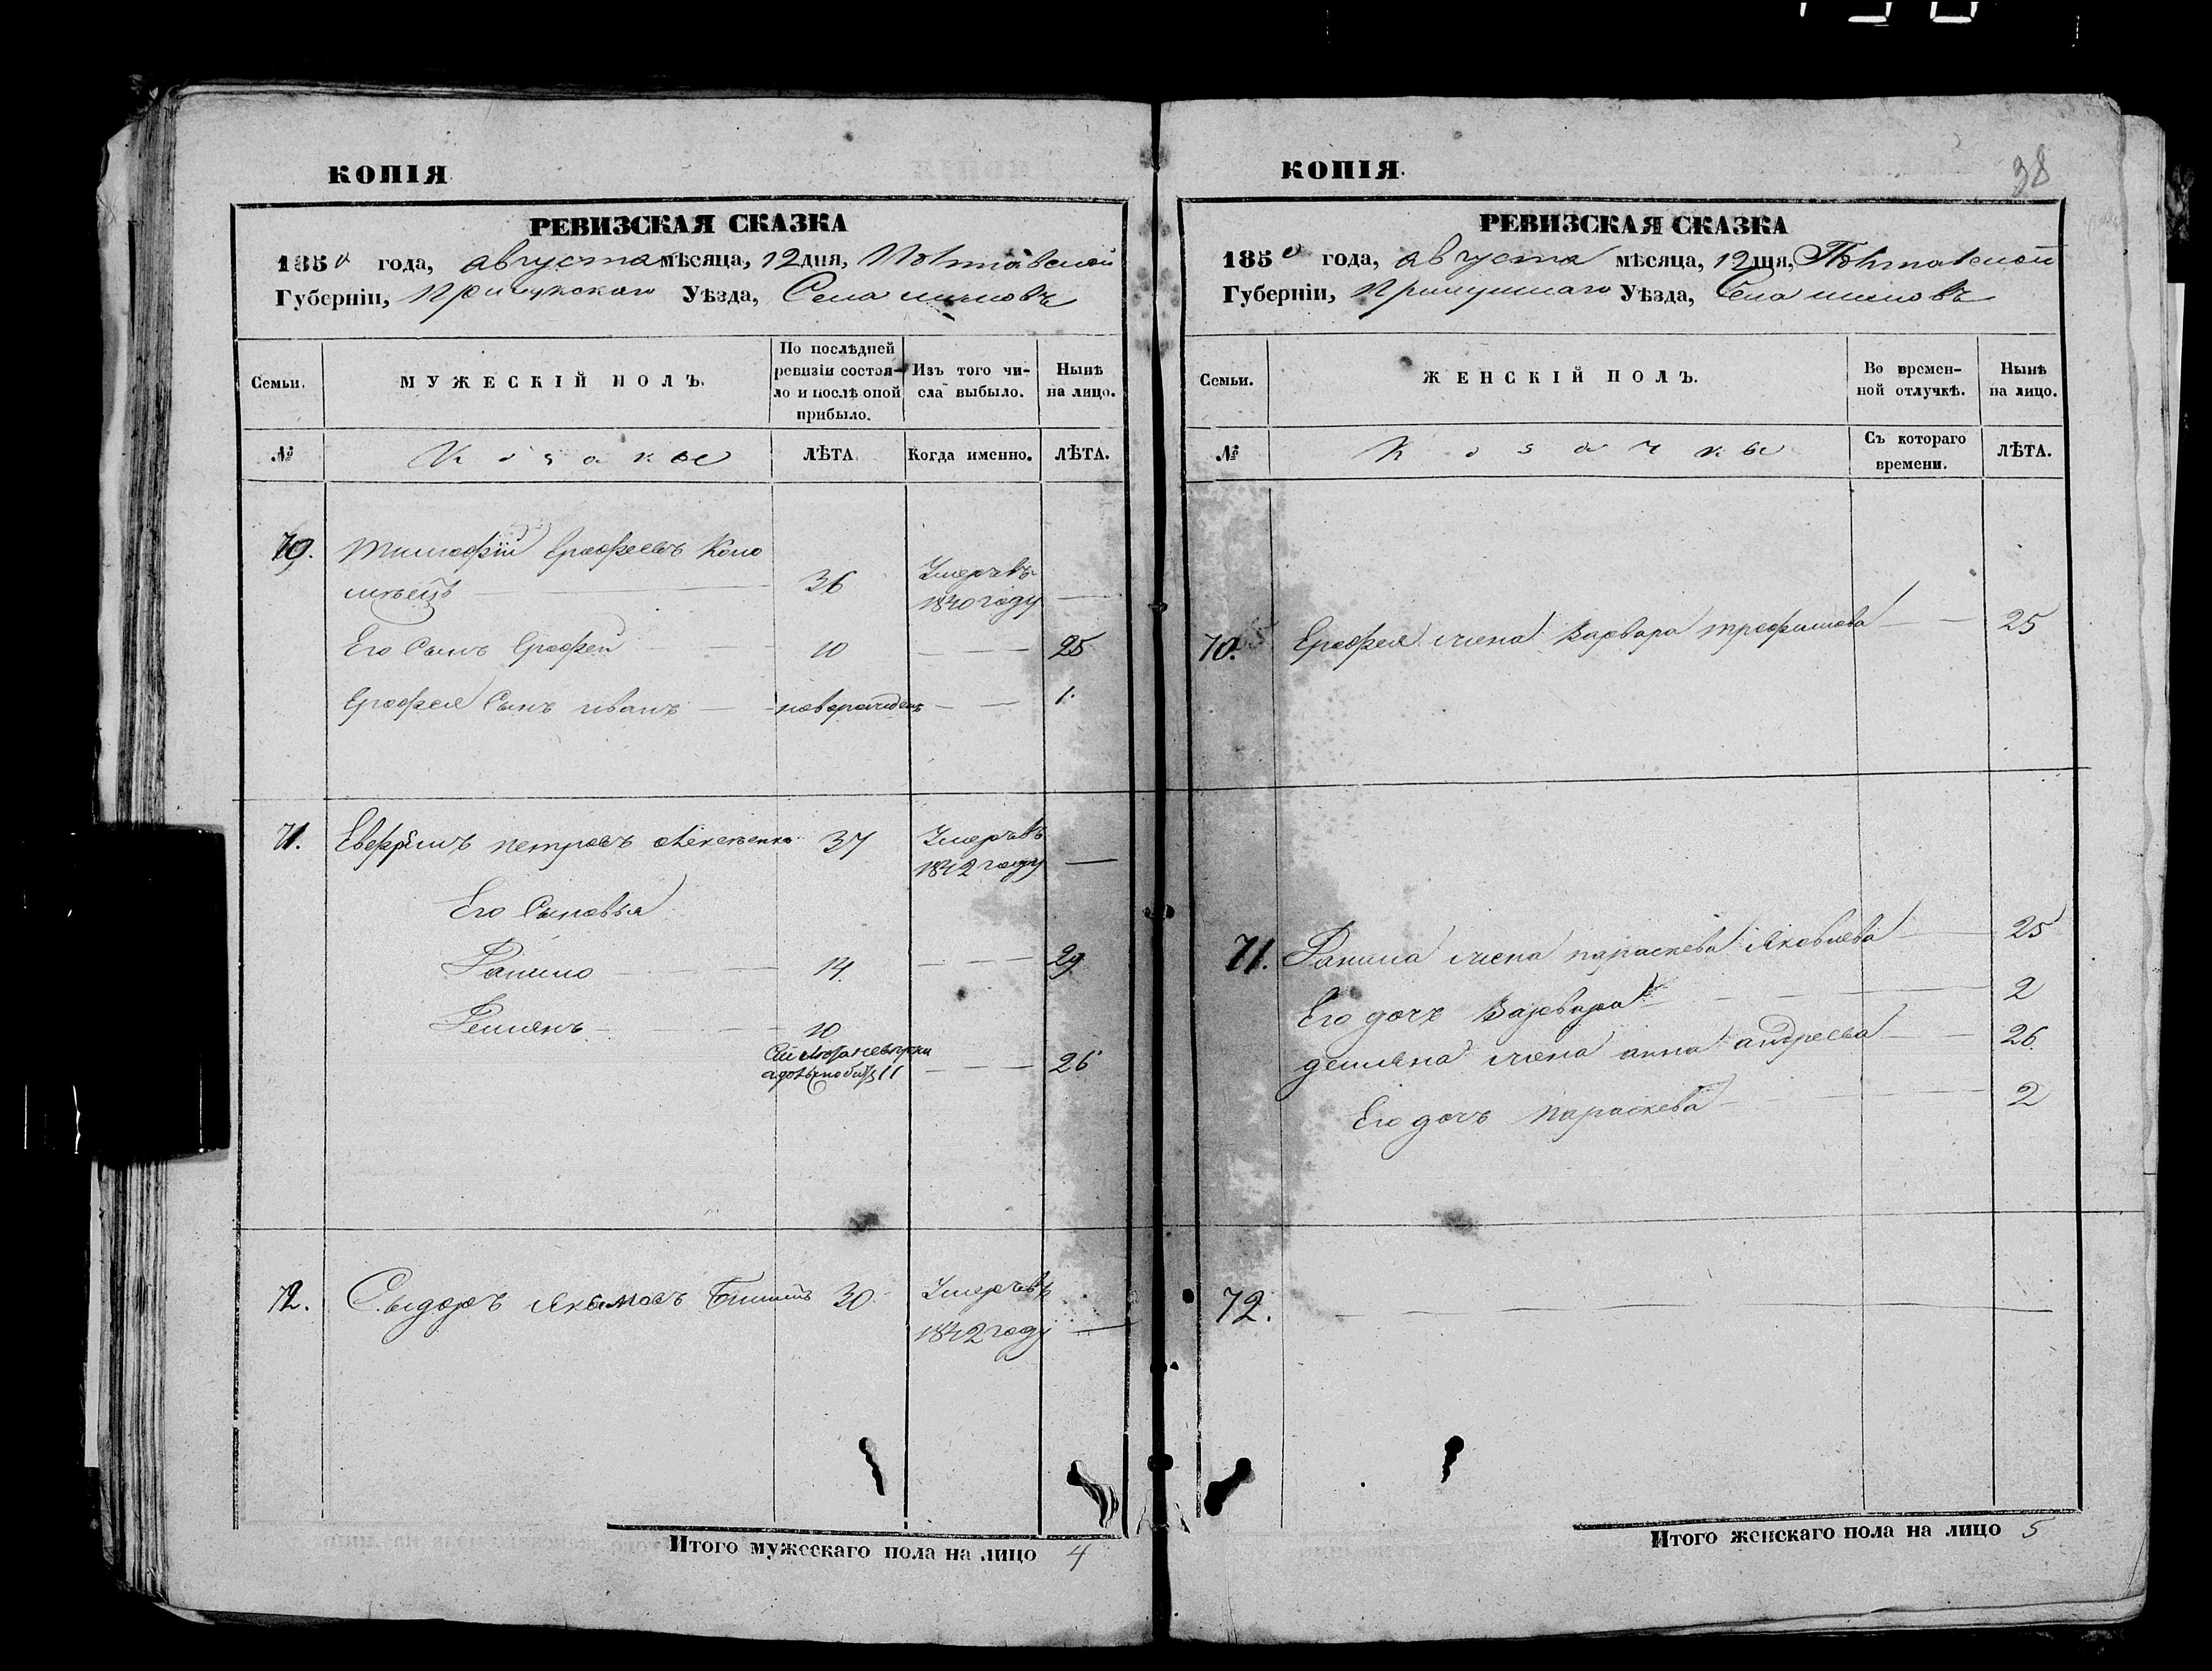 КОПІЯ
РЕВИЗСКАЯ СКАЗКА
1850 года, августа мѣсяца, 12 дня, Полтавской
Губерніи, Прилукского Уѣзда, Села
Семьи.
МУЖЕСКІЙ ПОЛЪ.
По послѣдней
ревизіи состоя-
ло и послѣ оной
прибыло.
Изъ того чи-
сла выбыло.
Нынѣ
на лицо.
№
Козаки
ЛѢТА.
Когда именно.
ЛѢТА.
70. Тимофій Ерофеевъ Коло
36 Умеръ въ
1840 году
Его Сынъ Ерофей 10 25
Ерофея Сынъ иванъ новорожденъ 1.
71. петровъ 37 Умеръ въ
1842 году
Его Сыновья
Данило 14. 29
Демянъ 10
11 26
72. Сыдоръ Якимовъ 30. Умеръ въ
1842 году
Итого мужескаго пола на лицо 4
КОПІЯ.
38
РЕВИЗСКАЯ СКАЗКА
1850 года, августа мѣсяца, 12 дня, Полтавской
Губерніи, Прилуцкаго Уѣзда, Села
Семьи.
ЖЕНСКІЙ ПОЛЪ.
Во времен-
ной отлучкѣ.
Нынѣ
на лицо.
№
Козачки
Съ котораго
времени.
ЛѢТА.
70. Ерофея жена Варвара трофимова 25
71. Данила жена параскева Яковлева 25
Его дочь Варвара 2
демяна жена анна андреева 26.
Его дочь параскева 2
72.
Итого женскаго пола на лицо 5